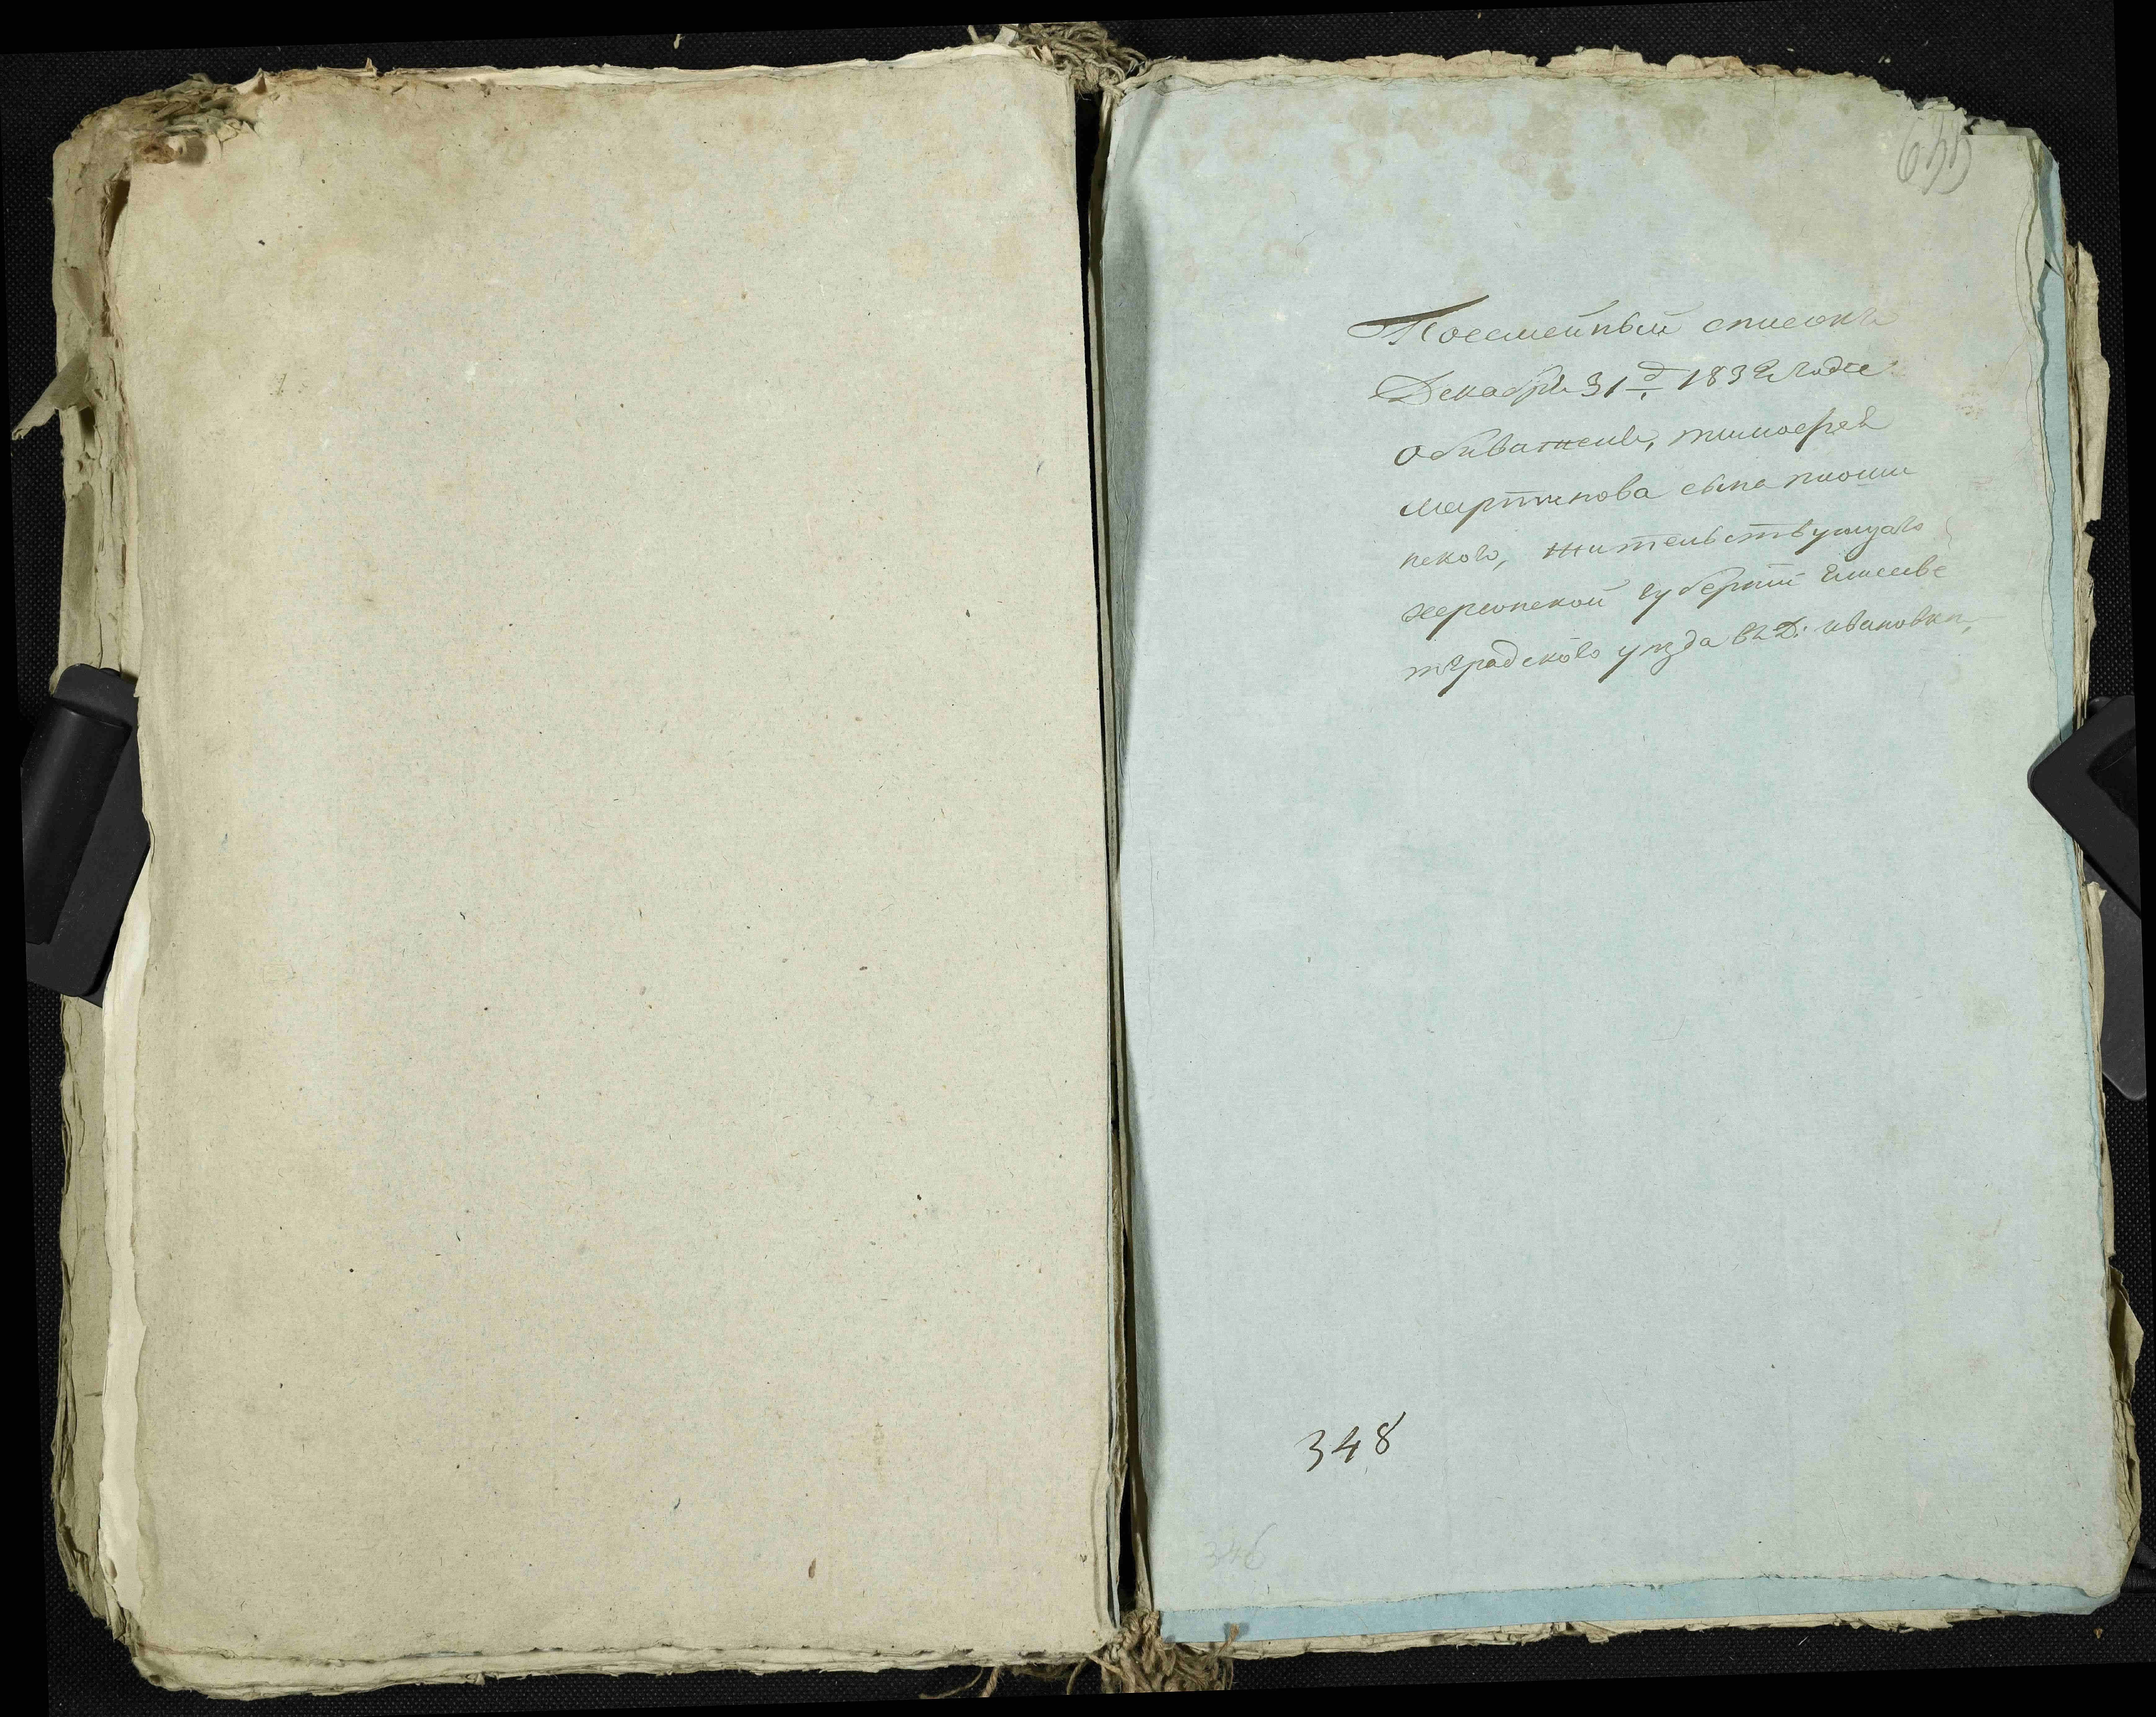 Посемейный списокъ
Декабря 31 д 1832 года
Обивателя, тимофея
мартинова сына
нского, жительствующаго
херсонской губернии Елисаве
тградского уезда въ д: ивановки,
348
346